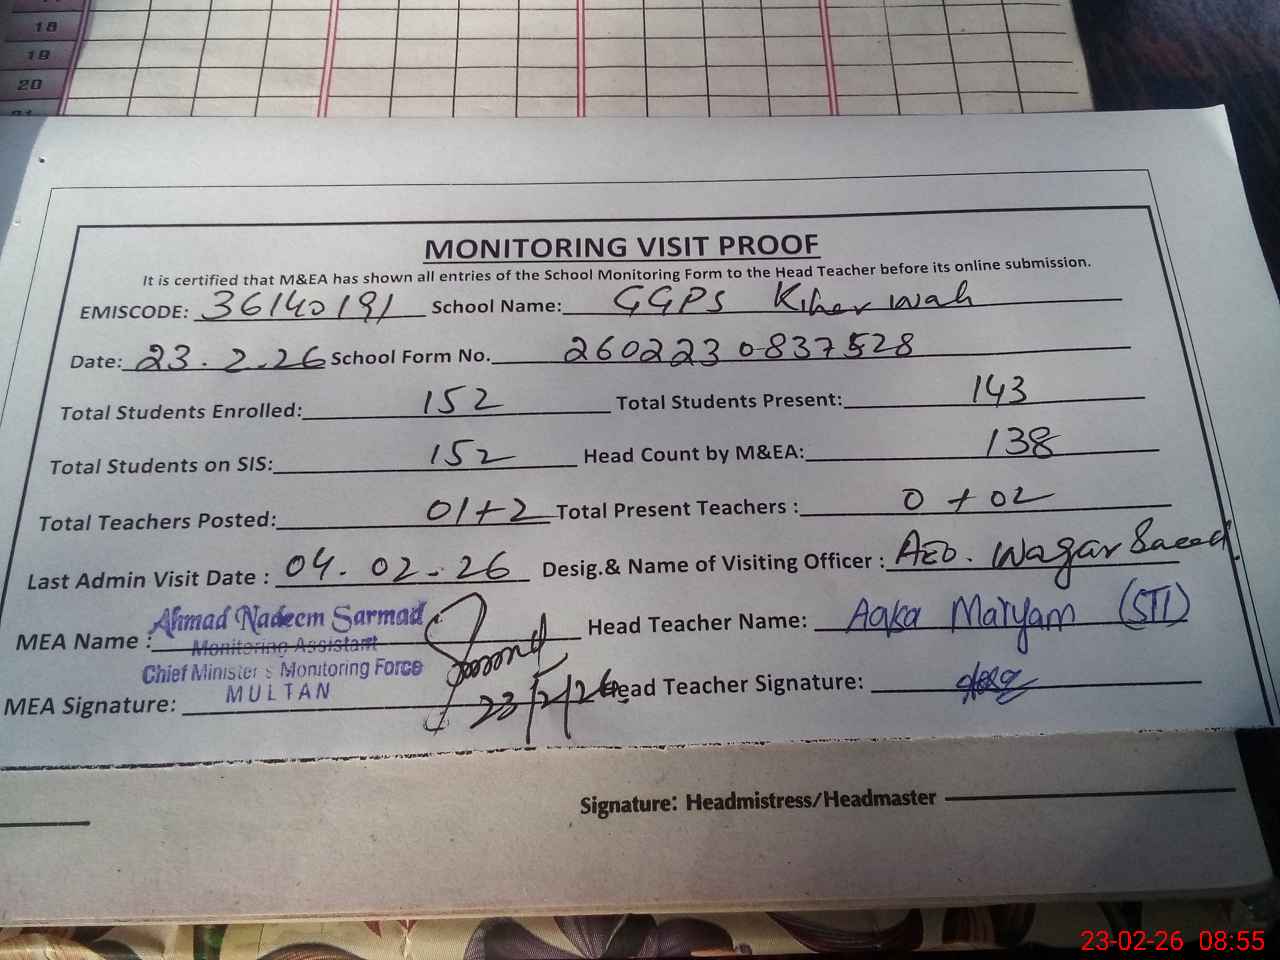 18
19
20
MONITORING VISIT PROOF
It is certified that M&EA has shown all entries of the School Monitoring Form to the Head Teacher before its online submission.
EMISCODE: 36140191 School Name: GGPS Kiher wah
Date: 23.2.26 School Form No. 2602230837528
Total Students Enrolled: 152 Total Students Present: 143
Total Students on SIS: 152 Head Count by M&EA: 138
Total Teachers Posted: 01+2 Total Present Teachers : 0 + 02
Last Admin Visit Date : 04.02.26 Desig.& Name of Visiting Officer : AEO. Waqar Saeed
MEA Name : Ahmad Nadeem Sarmad Head Teacher Name: Aqka Maryam (STI)
Monitoring Assistant
Chief Minister's Monitoring Force
MULTAN
MEA Signature: 23/2/26 Head Teacher Signature:
Signature: Headmistress/Headmaster
23-02-26 08:55